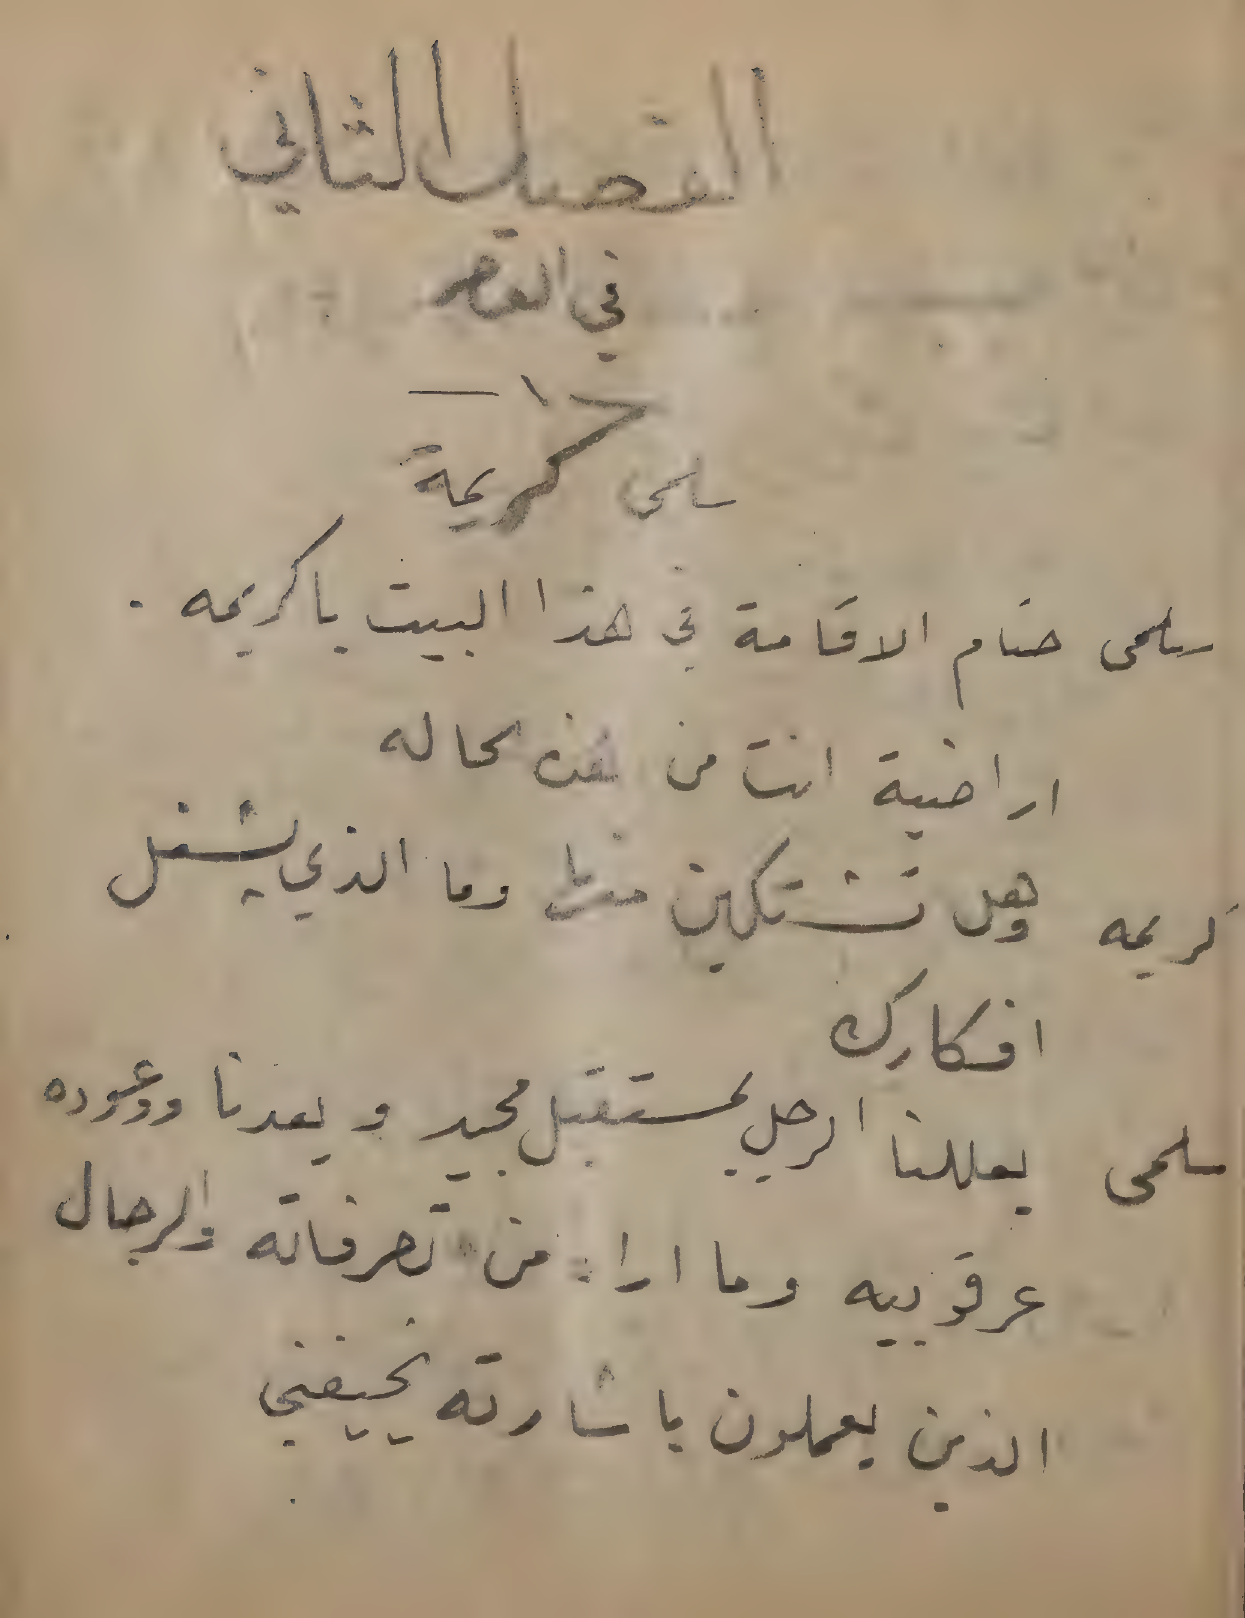 الفصل الثاني
في القصر
سلمى كريمة
سلمى ختام الاقامة في هذا البيت يا كريمه .
اراضية انت من هذه لحاله
كريمه وهل تشتكين منها وما الذي يشغل
افكارك
سلمى يعللنا الرجل بمستقبل مجيد و يعدنا ووعوده
عرقوبيه وما اراه من تصرفاته والرجال
الذين يعملون باشارته يخيفني